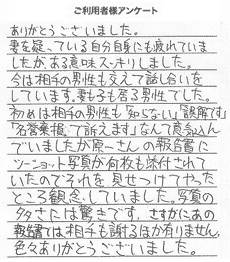 ご利用者様アンケート
ありがとうございました。
妻を疑っている自分自身にも疲れていま
したが、ある意味スッキリしました。
今は相手の男性も交えて話し合いを
しています。妻も子も居る男性でした。
初めは相手の男性も「知らない」「誤解です」
「名誉棄損で訴えます」なんて意気込ん
でいましたが原一さんの報告書に
ツーショット写真が何枚も添付されて
いたのでそれを見せつけてやった
ところ観念していました。写真の
多さには驚きです。さすがにあの
報告書では相手も謝るほか有りません。
色々ありがとうございました。